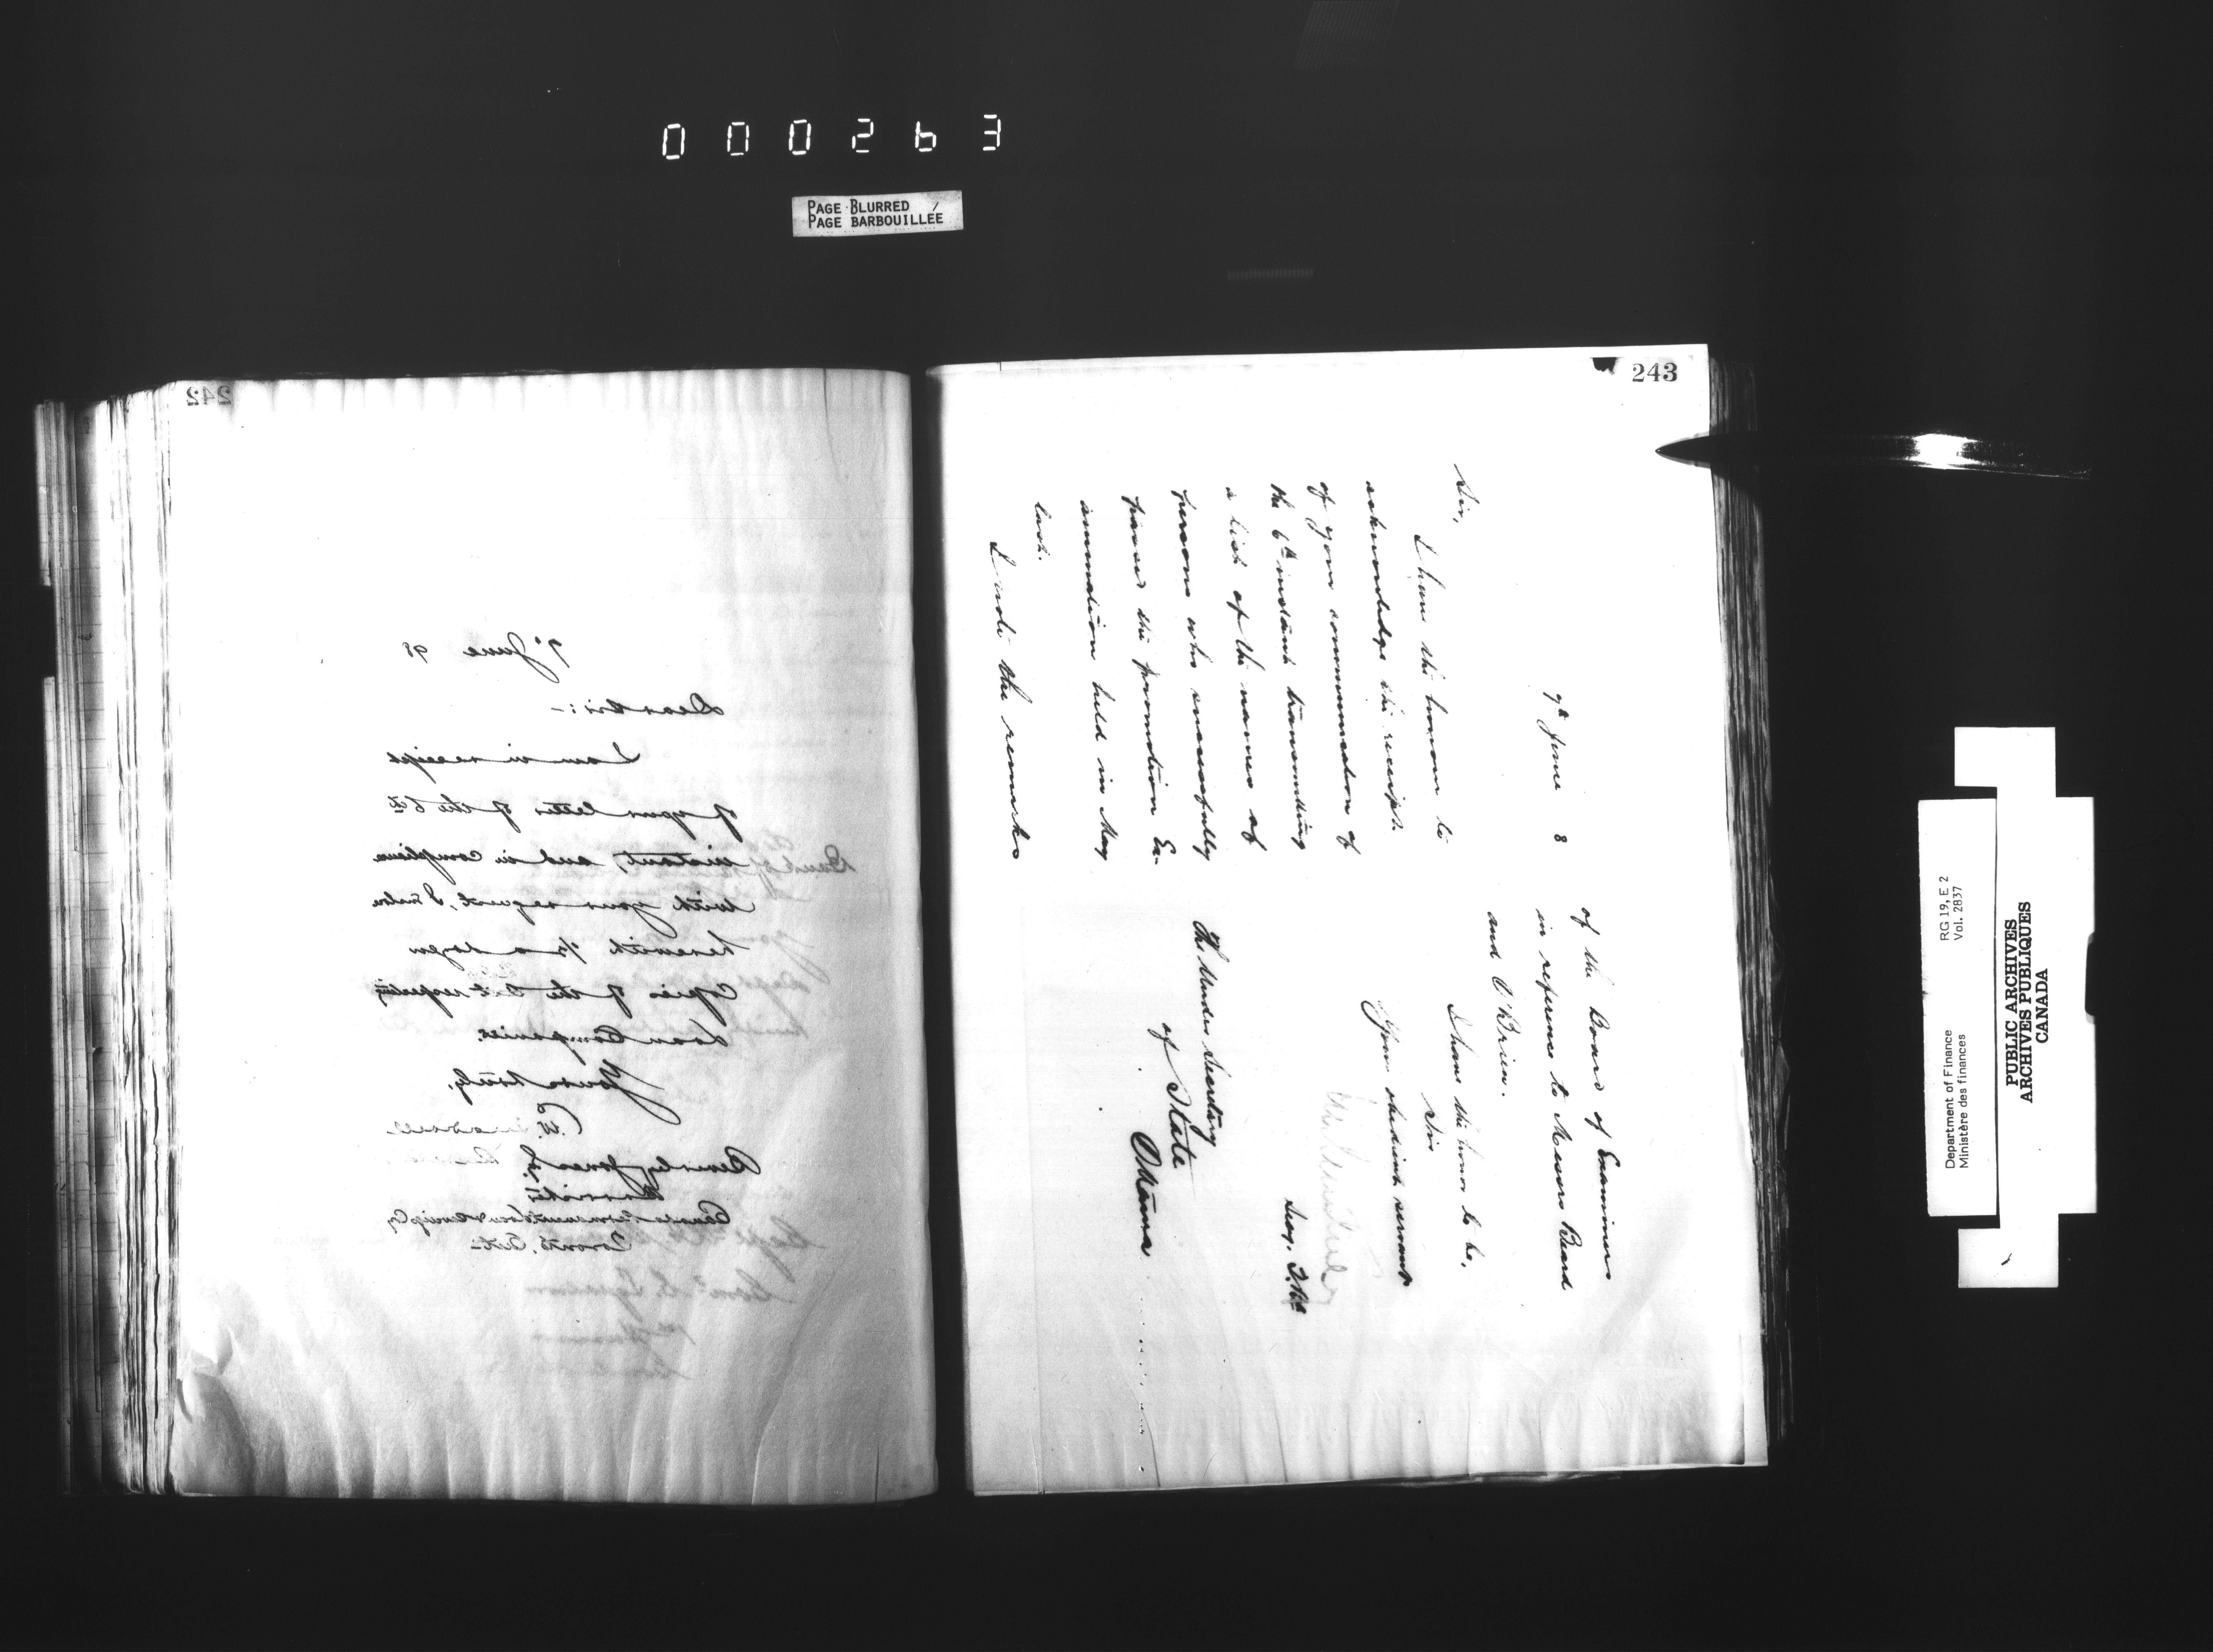 000263
PAGE BLURRED
PAGE BARBOUILLÉE
242
7th June 98
Dear Sir:-
I am in receipt
of your letter of the 6th
instant, and in compliance
with your request, I enclose
herewith ½ a dozen
Copies of the Bill respecting
Loan Companies.
Yours truly,
Beverley Jones Esq.
Barrister
Canada Permanent Loan & Savings Co.
Toronto, Ont.
243
7th June 8
Sir,
I have the honour to
acknowledge the receipt
of your communication of
the 6th instant transmitting
a list of the names of
persons who successfully
passed the promotion Ex-
amination held in May
last.
I note the remarks
of the Board of Examiners
in reference to Messrs Beard
and O'Brien.
I have the honor to be,
Sir
Your obedient servant
The Under Secretary
of State
Ottawa
Department of Finance
Ministère des finances
RG 19, E 2
Vol. 2837
PUBLIC ARCHIVES
ARCHIVES PUBLIQUES
CANADA